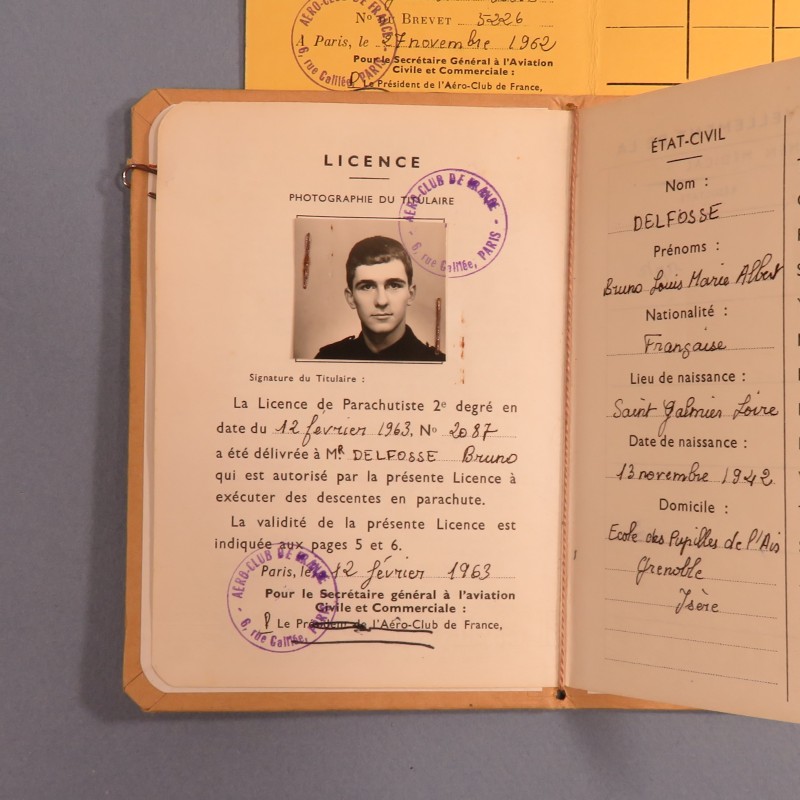 N° du Brevet 5226
A Paris, le 27 novembre 1962
Pour le Secrétaire Général à l'Aviation
Civile et Commerciale :
P. Le Président de l'Aéro-Club de France,
AÉRO-CLUB DE FRANCE
6, rue Galilée, PARIS
LICENCE
PHOTOGRAPHIE DU TITULAIRE
AÉRO-CLUB DE FRANCE
6, rue Galilée, PARIS
Signature du Titulaire :
La Licence de Parachutiste 2e degré en
date du 12 février 1963, N° 2087
a été délivrée à MR DELFOSSE Bruno
qui est autorisé par la présente Licence à
exécuter des descentes en parachute.
La validité de la présente Licence est
indiquée aux pages 5 et 6.
Paris, le 12 février 1963
Pour le Secrétaire général à l'aviation
Civile et Commerciale :
P Le Président de l'Aéro-Club de France,
AÉRO-CLUB DE FRANCE
6, rue Galilée, PARIS
ÉTAT-CIVIL
Nom :
DELFOSSE
Prénoms :
Bruno Louis Marie Albert
Nationalité :
Française
Lieu de naissance :
Saint Galmier Loire
Date de naissance :
13 novembre 1942
Domicile :
Ecole des Pupilles de l'Air
Grenoble
Isère